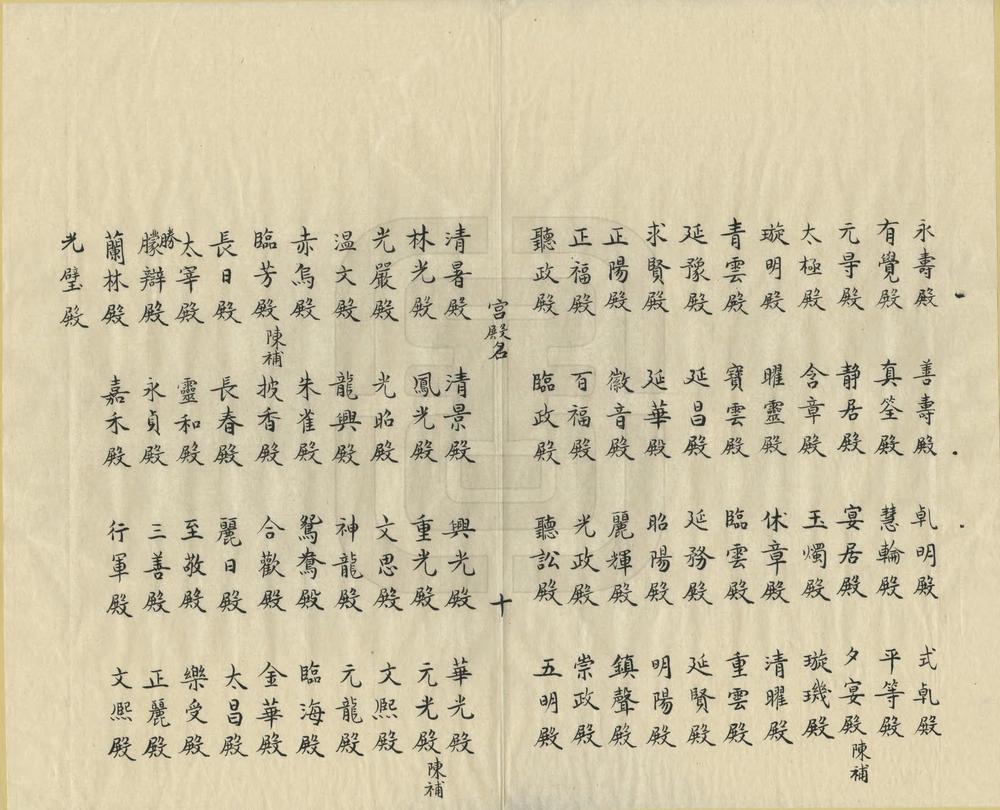 永壽殿 善壽殿 乹明殿 式乹殿
有覺殿 真筌殿 慧輪殿 平等殿
元㝵殿 静居殿 宴居殿 夕宴殿 陳補
太極殿 含章殿 玉燭殿 璇璣殿
璇明殿 曜靈殿 休章殿 清曜殿
青雲殿 寶雲殿 臨雲殿 重雲殿
延豫殿 延昌殿 延務殿 延賢殿
求賢殿 延華殿 昭陽殿 明陽殿
正陽殿 徽音殿 麗輝殿 鎮聲殿
正福殿 百福殿 光政殿 崇政殿
聽政殿 臨政殿 聽訟殿 五明殿
宫殿名 十
清暑殿 清景殿 興光殿 華光殿
林光殿 鳳光殿 重光殿 元光殿 陳補
光嚴殿 光昭殿 文思殿 文熈殿
温文殿 龍興殿 神龍殿 元龍殿
赤烏殿 朱雀殿 鴛鴦殿 臨海殿
臨芳殿 陳補 披香殿 合歡殿 金華殿
長日殿 長春殿 麗日殿 太昌殿
太宰殿 靈和殿 至敬殿 樂受殿
勝辯殿 永貞殿 三善殿 正麗殿
蘭林殿 嘉禾殿 行軍殿 文熈殿
光璧殿